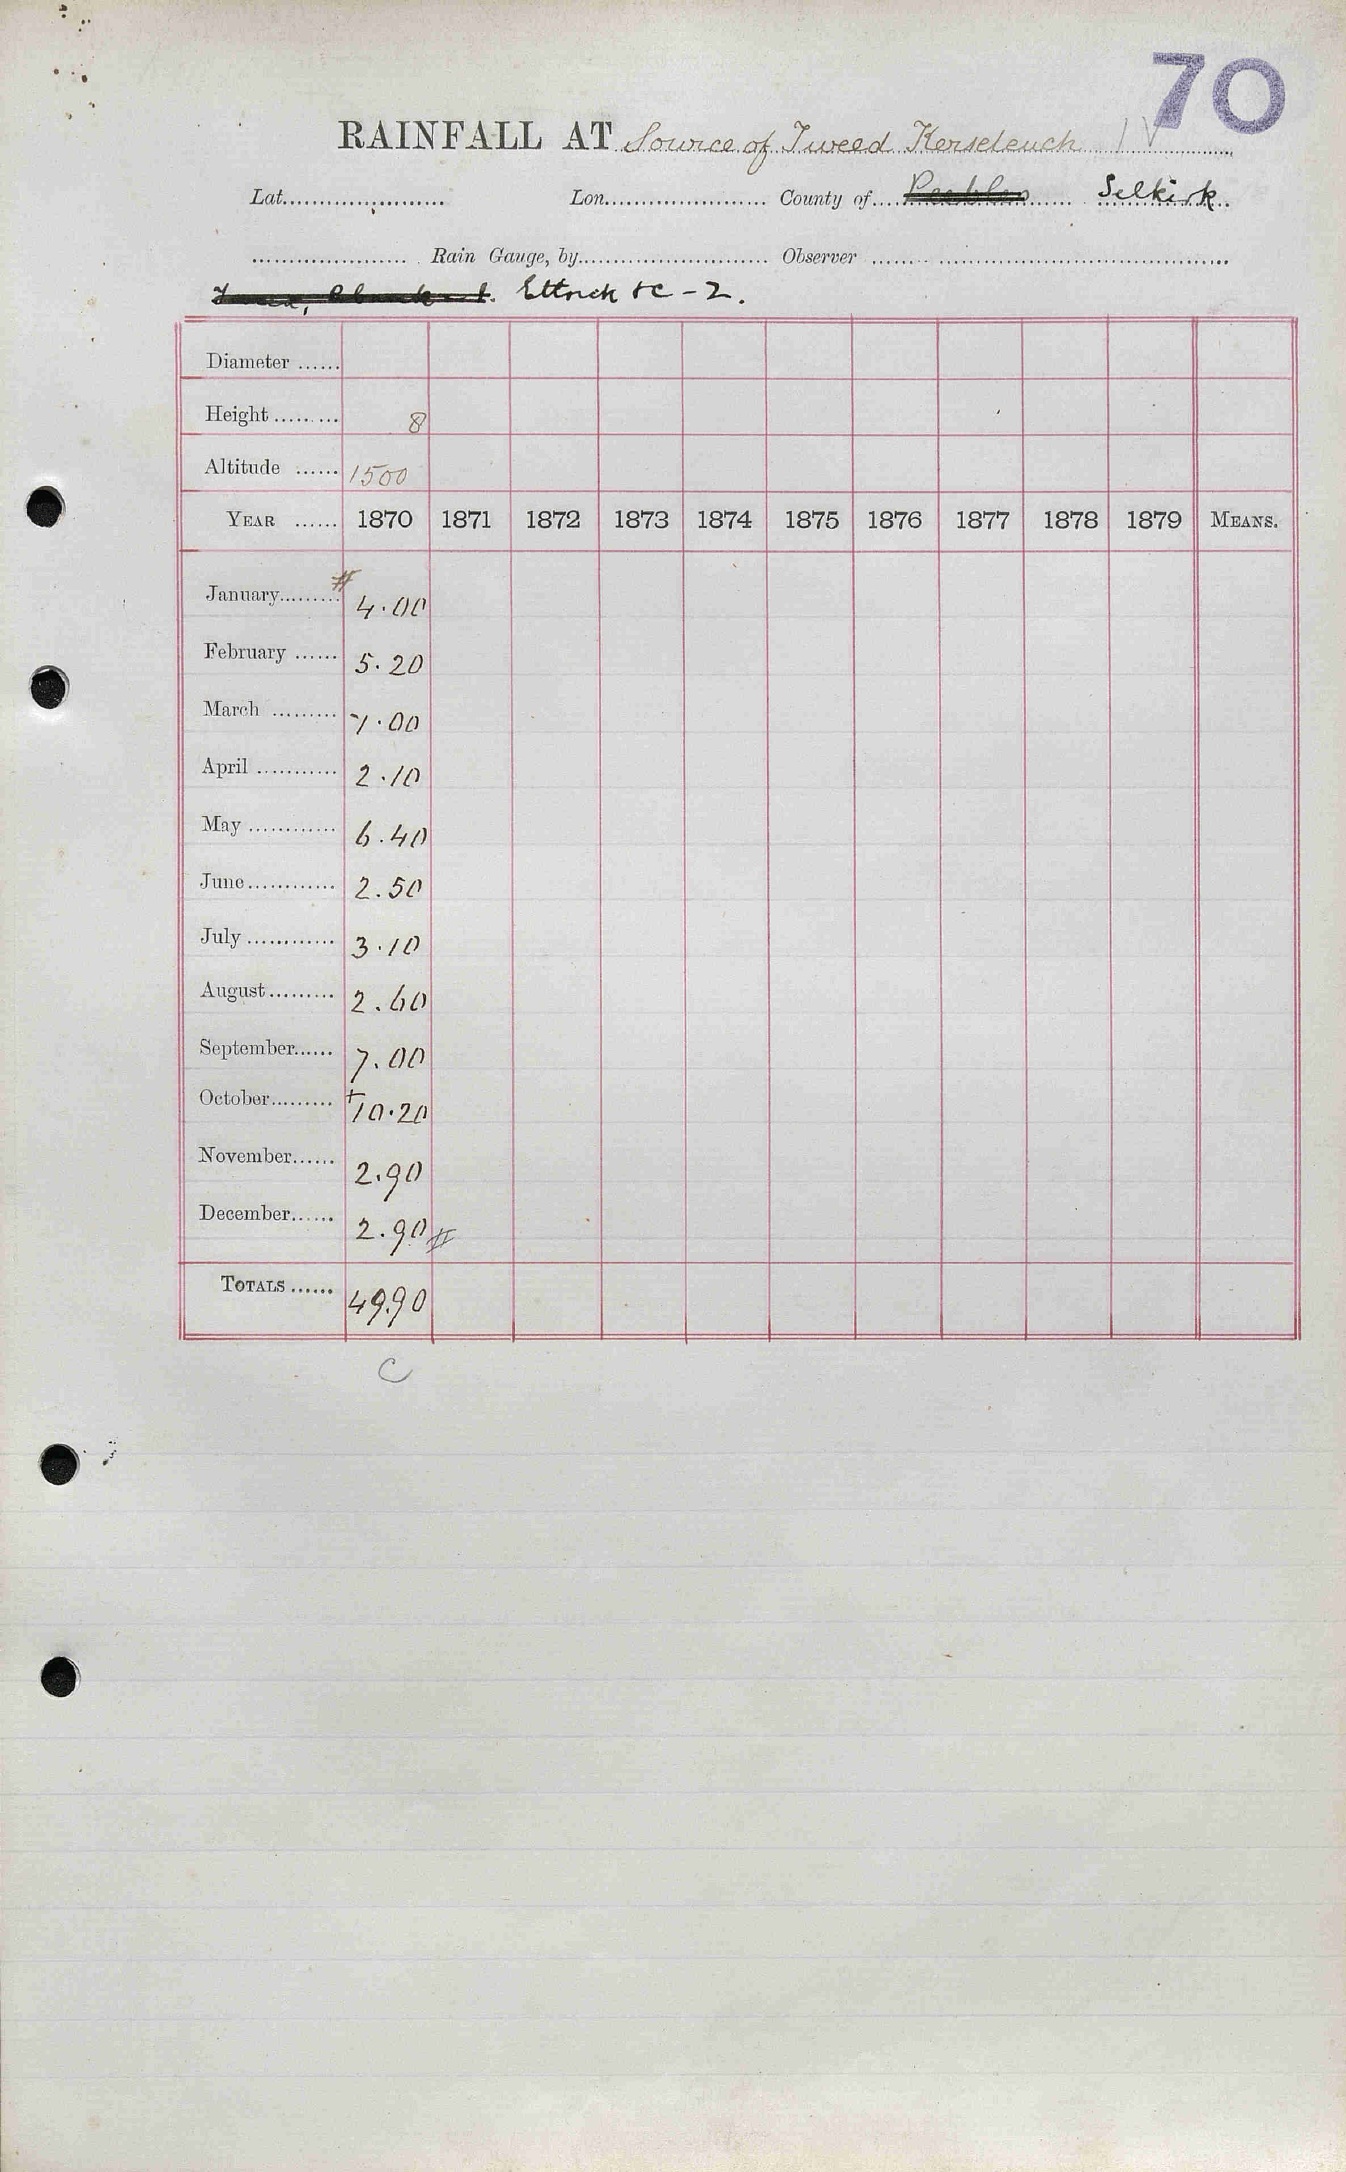 70
RAINFALL AT Source of Tweed Kerscleuch IV
Lat. Lon. County of Peebles Selkirk
Rain Gauge, by Observer
Ettrick &c - 2.
Diameter
Height 8
Altitude 1500
YEAR 1870 1871 1872 1873 1874 1875 1876 1877 1878 1879 MEANS.
January # 4.00
February 5.20
March 1.00
April 2.10
May 6.40
June 2.50
July 3.10
August 2.60
September 7.00
October + 10.20
November 2.90
December 2.90 #
TOTALS 49.90
C